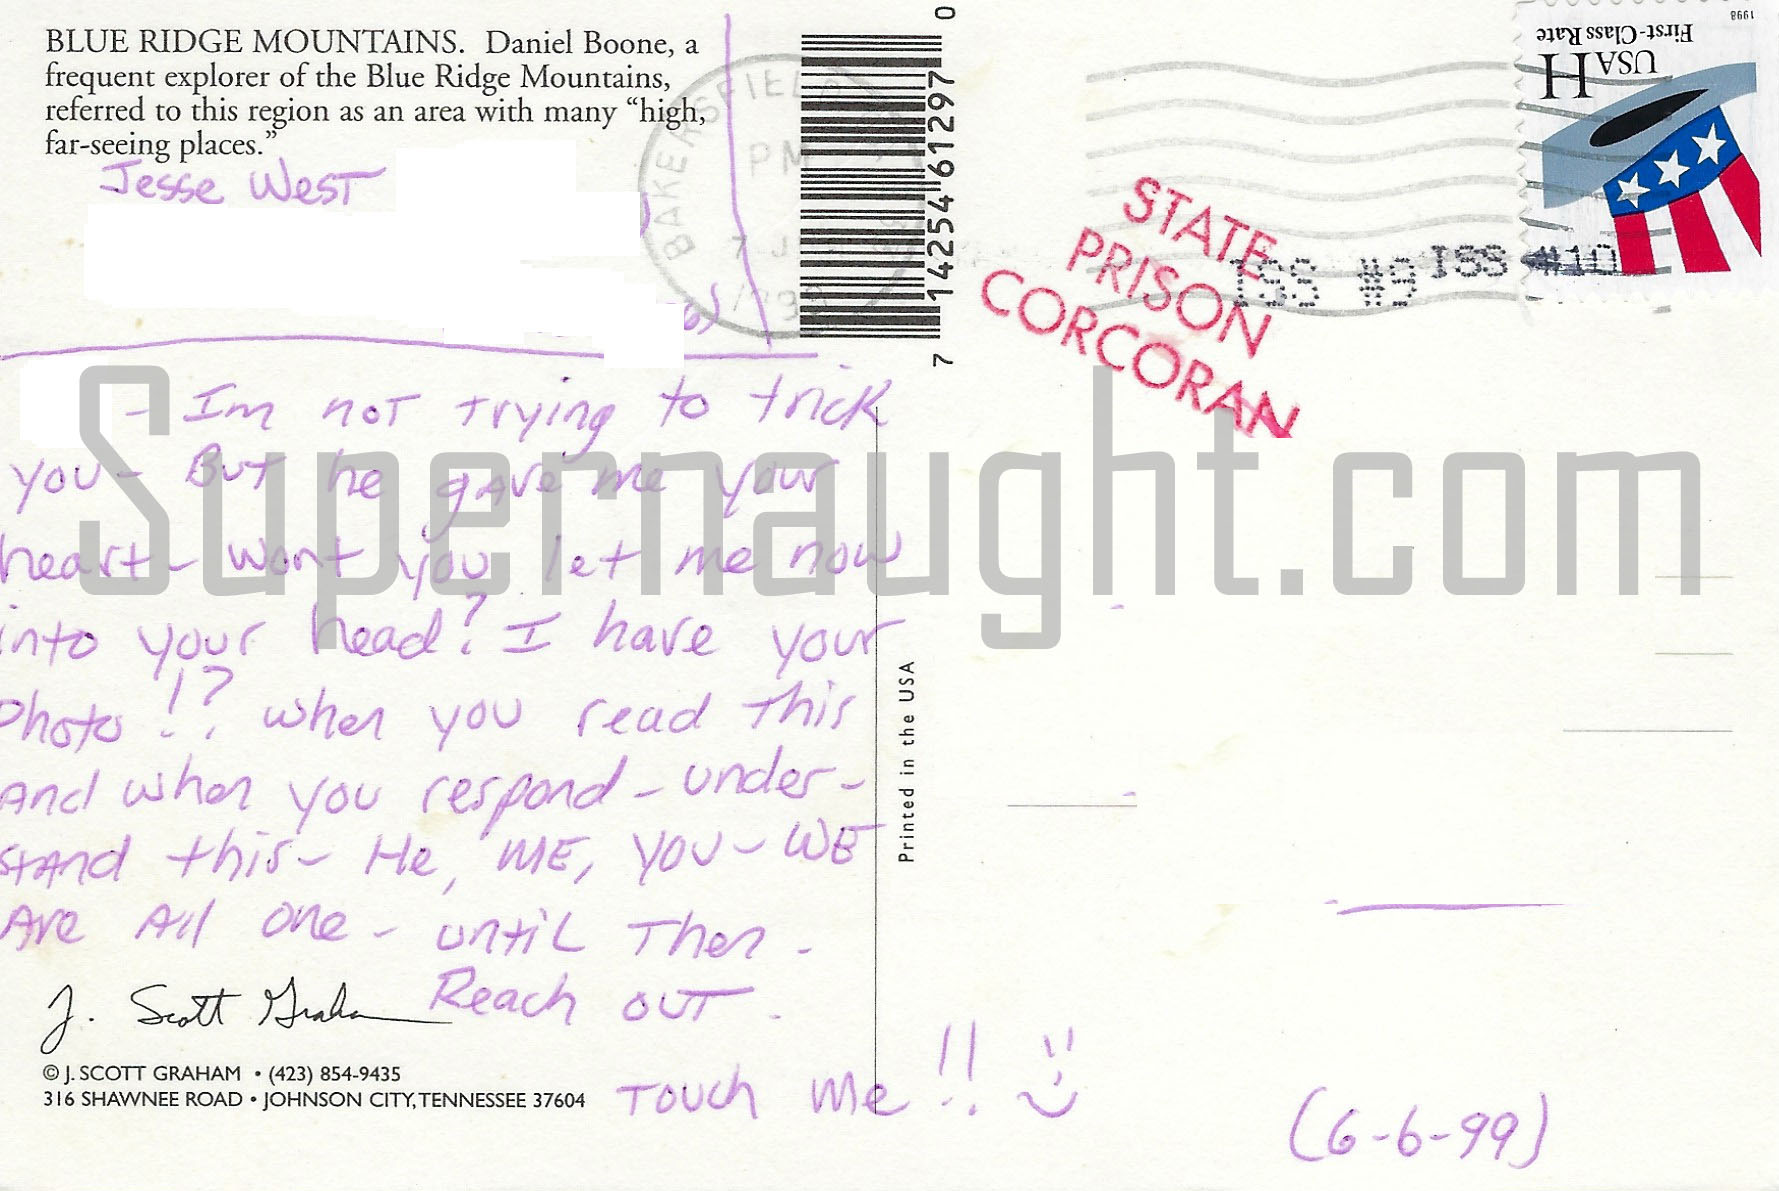 BLUE RIDGE MOUNTAINS. Daniel Boone, a
frequent explorer of the Blue Ridge Mountains,
referred to this region as an area with many “high,
far-seeing places.”
Jesse West
- Im not trying to trick
you - But he gave me your
heart - wont you let me now
into your head? I have your
Photo!!? when you read this
And when you respond - under-
stand this - He, ME, YOU - WE
Are All one - until Then -
Reach out.
Touch me!!
(6-6-99)
J. Scott Graham
© J. SCOTT GRAHAM • (423) 854-9435
316 SHAWNEE ROAD • JOHNSON CITY, TENNESSEE 37604
Printed in the USA
7 14254 61297 0
BAKERSFIELD
PM
7 J
1999
STATE
PRISON
CORCORAN
ISS #9 ISS #10
USA H
First-Class Rate
1998
Supernaught.com